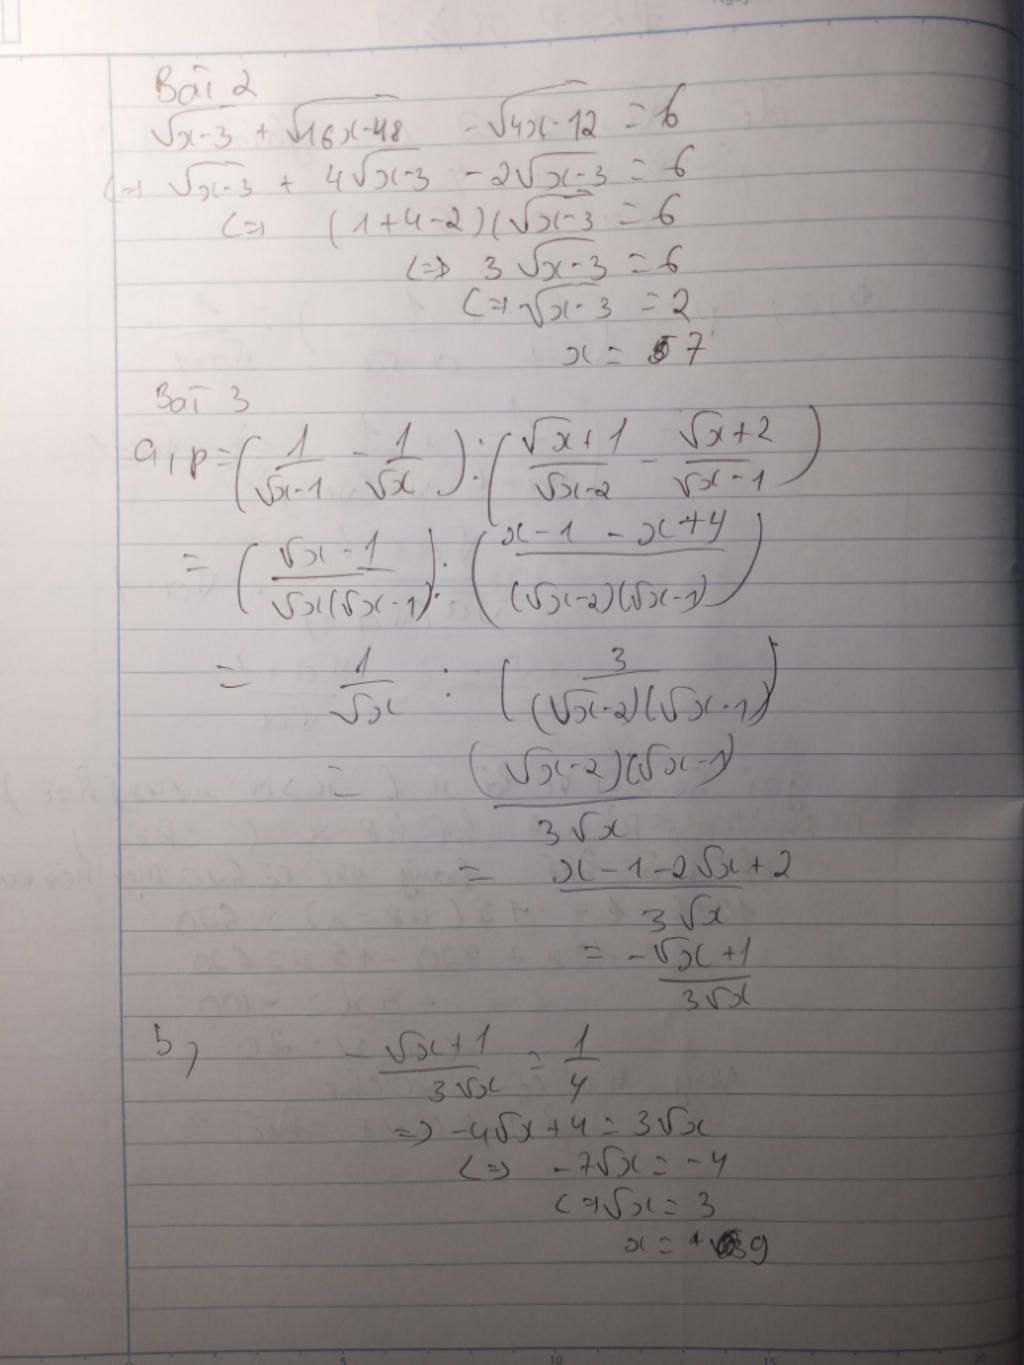 Bài 2
√x-3 + √16x-48 - √4x-12 = 6
<=> √x-3 + 4√x-3 - 2√x-3 = 6
<=> (1+4-2)(√x-3 = 6
<=> 3√x-3 = 6
<=> √x-3 = 2
x = 7
Bài 3
a, P = (1/√x-1 - 1/√x) : (√x+1/√x-2 - √x+2/√x-1)
= (√x-1/√x(√x-1)) : (x-1-x+4/(√x-2)(√x-1))
= 1/√x : (3/(√x-2)(√x-1))
= (√x-2)(√x-1)/3√x
= x-1-2√x+2/3√x
= -√x+1/3√x
b, -√x+1/3√x = 1/4
=> -4√x+4 = 3√x
<=> -7√x = -4
<=> √x = 3
x = 9